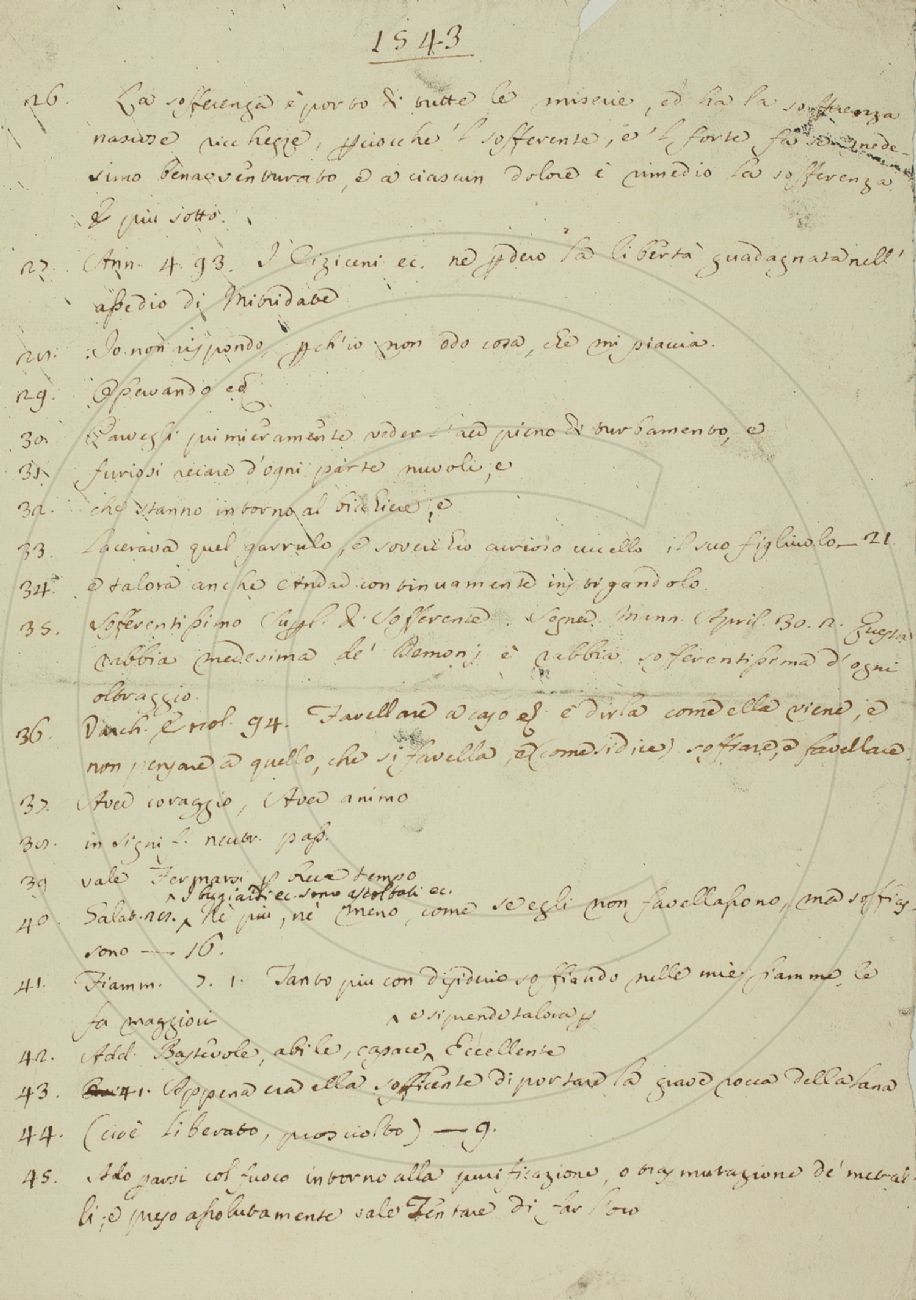 1543
26. La sofferenza è porto di tutte le miserie, ed ha la sofferenza
nascose ricchezze, pciocche 'l sofferente, e 'l forte fa se mede-
simo benavventurato, e a ciascun dolore è rimedio la sofferenza
E più sotto.
27. Ann. 4. 93. I Ciziceni ec. ne pdero la libertà guadagnata nell'
assedio di Mitridate
28. Io non rispondo, pch'io non odo cosa, che mi piaccia.
29. Operando ec
30. Parvegli primieramente veder l'aer pieno di turbamento, e
31. furiosi recare d'ogni parte nuvoli, e
32. che stanno intorno al bicchiere, e
33. Lacerava quel garrulo, e soverchio curioso uccello il suo figliuolo — 21
34. e talora anche Andar continuamente instigandolo
35. Sofferentissimo Supl. di Sofferente. Segner. Mann. April. 30. 2. Questa
rabbia medesima de' Demonj è rabbia sofferentissima d'ogni
oltraggio.
36. Varch. Ercol. 94. Favellare a caso è dirla come ella viene, e
non pensare a quello, che si favella, e (come si dice) soffiare, e favellare.
37. Aver coraggio, Aver animo
38. in signif. neutr. pass.
39 vale Fermarsi p breve tempo
I bugiardi ec. sono ascoltati ec.
40. Salat. 28. Nè più, nè meno, come se egli non favellassono, ma soffias-
sono — 16.
41. Fiamm. 7. 1. Tanto piu con disiderio soffiando nelle mie fiamme, le
fa maggiori
e si prende talora p
42. Add. Bastevole, abile, capace, Eccellente
43. 41. Appena era ella sofficente di portare la grave rocca della lana
44. (cioè liberato, prosciolto) — 9.
45. Adoprarsi col fuoco intorno alla purificazione, o trasmutazione de' metal-
li; e preso assolutamente vale Tentare di far l'oro